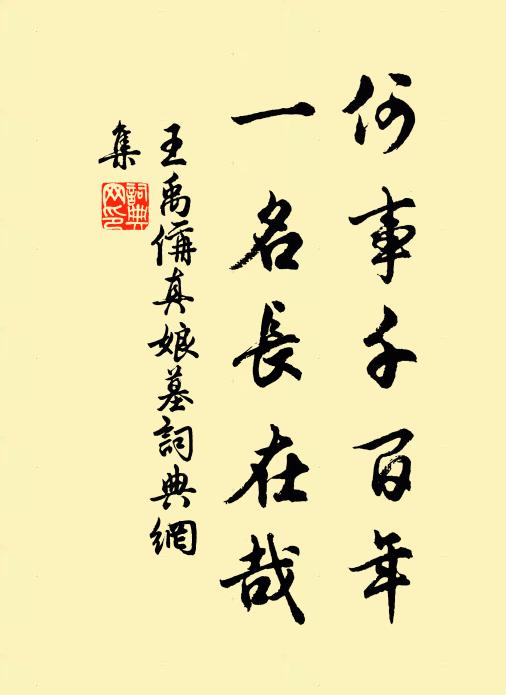 何事千百年
一名長在哉
王禹偁真娘墓詞典網
集
詞典網印